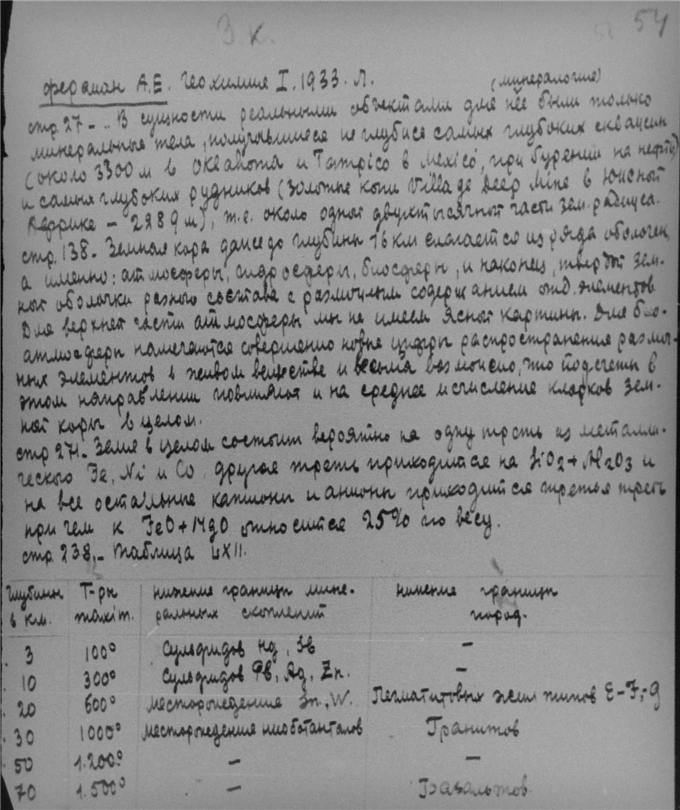 З.К.
54
Ферсман А.Е. Геохимия I. 1933. Л.
(минералогия)
стр. 27 - .. В сущности реальными объектами для нее были только
минеральные тела, получавшиеся из глубясе самых глубоких скважин
(около 3300 м в Oklahoma и Tampico в Mexico, при бурении на нефть)
и самых глубоких рудников (Золотые копи Villa де Deep Mine в Южной
Африке - 2289 м), т.е. около одной двухтысячной части зем. радиуса.
стр. 138. Земная кора даже до глубины 16 км слагается из ряда оболочек,
а именно: атмосферы, гидросферы, биосферы, и наконец, твердой зем-
ной оболочки разного состава с различным содержанием отд. элементов.
Для верхней части атмосферы мы не имеем ясной картины. Для био-
атмосферы намечаются совершенно новые цифры распространения различ-
ных элементов в живом веществе и весьма возможно, что подсчеты в
этом направлении повлияют и на среднее исчисление кларков зем-
ной коры в целом.
стр 271. Земля в целом состоит вероятно на одну треть из металли-
ческого Fe, Ni и Co, другая треть приходится на SiO2 + Al2O3 и
на все остальные катионы и анионы приходится третья треть
при чем к FeO + MgO относится 25% по весу.
стр. 238, - таблица LXII.
Глубины Т-ры нижние границы мине- нижние границы
в км. maxim. ральных скоплений пород.
3 100° Сульфидов Hg, Sb -
10 300° Сульфидов Pb, Ag, Zn. -
20 600° Месторождения Sn, W. Пегматитовых жил типов E-F,-g
30 1000° Месторождения ниоботанталов Гранитов
50 1.200° - -
70 1.500° - Базальтов